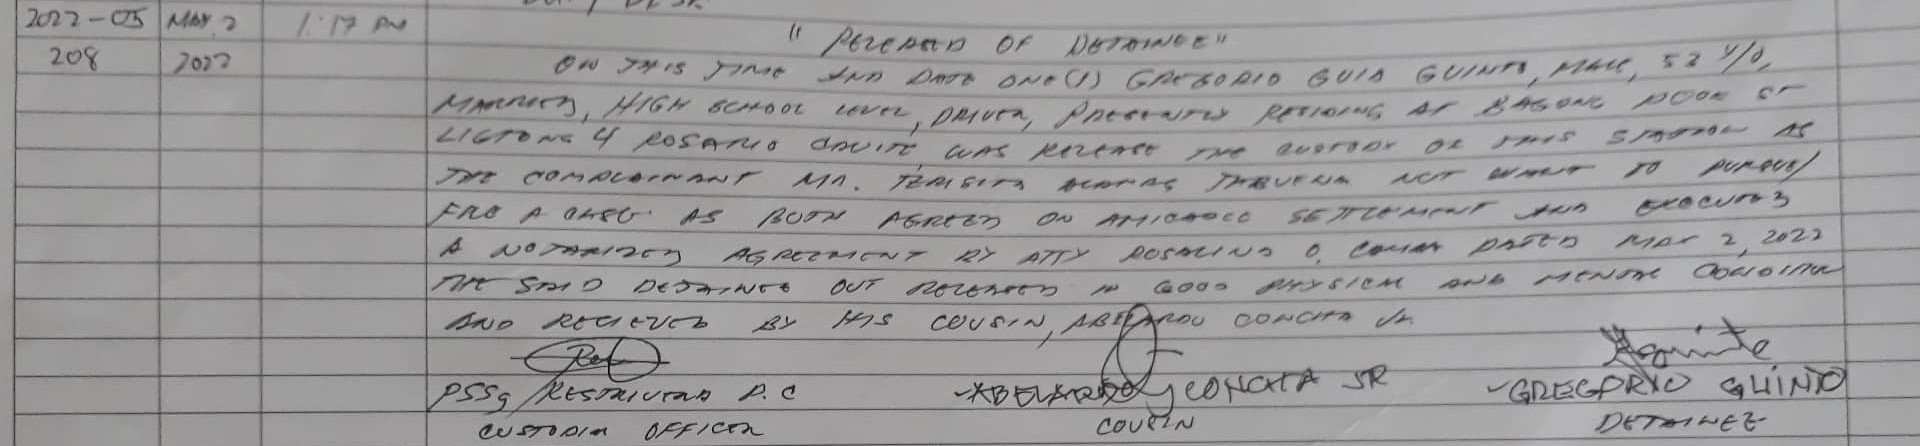 2022-05 MAY 2 1:17 PM
"RELEASED OF DETAINEE"
208 2022 ON THIS TIME AND DATE ONE (1) GREGORIO GUIA GUINTO, MALE, 53 Y/O,
MARRIED, HIGH SCHOOL LEVEL, DRIVER, PRESENTLY RESIDING AT BAGONG POOK ST
LIGTONG 4 ROSARIO CAVITE, WAS RELEASE THE CUSTODY OF THIS STATION AS
THE COMPLAINANT MA. TERISITA TABUENA NOT WANT TO PURSUE/
A CASE AS BOTH AGREED ON AMICABLE SETTLEMENT AND EXECUTED
A NOTARIZED AGREEMENT BY ATTY ROSALINO O. DATED MAY 2, 2022
THE SAID DETAINEE OUT RELEASED IN GOOD PHYSICAL AND MENTAL CONDITION
AND RECIEVED BY HIS COUSIN, ABELARDO CONCHA JR.
PSSg D.C ABELARDO CONCHA SR GREGORIO GUINTO
CUSTODIAL OFFICER COUSIN DETAINEE